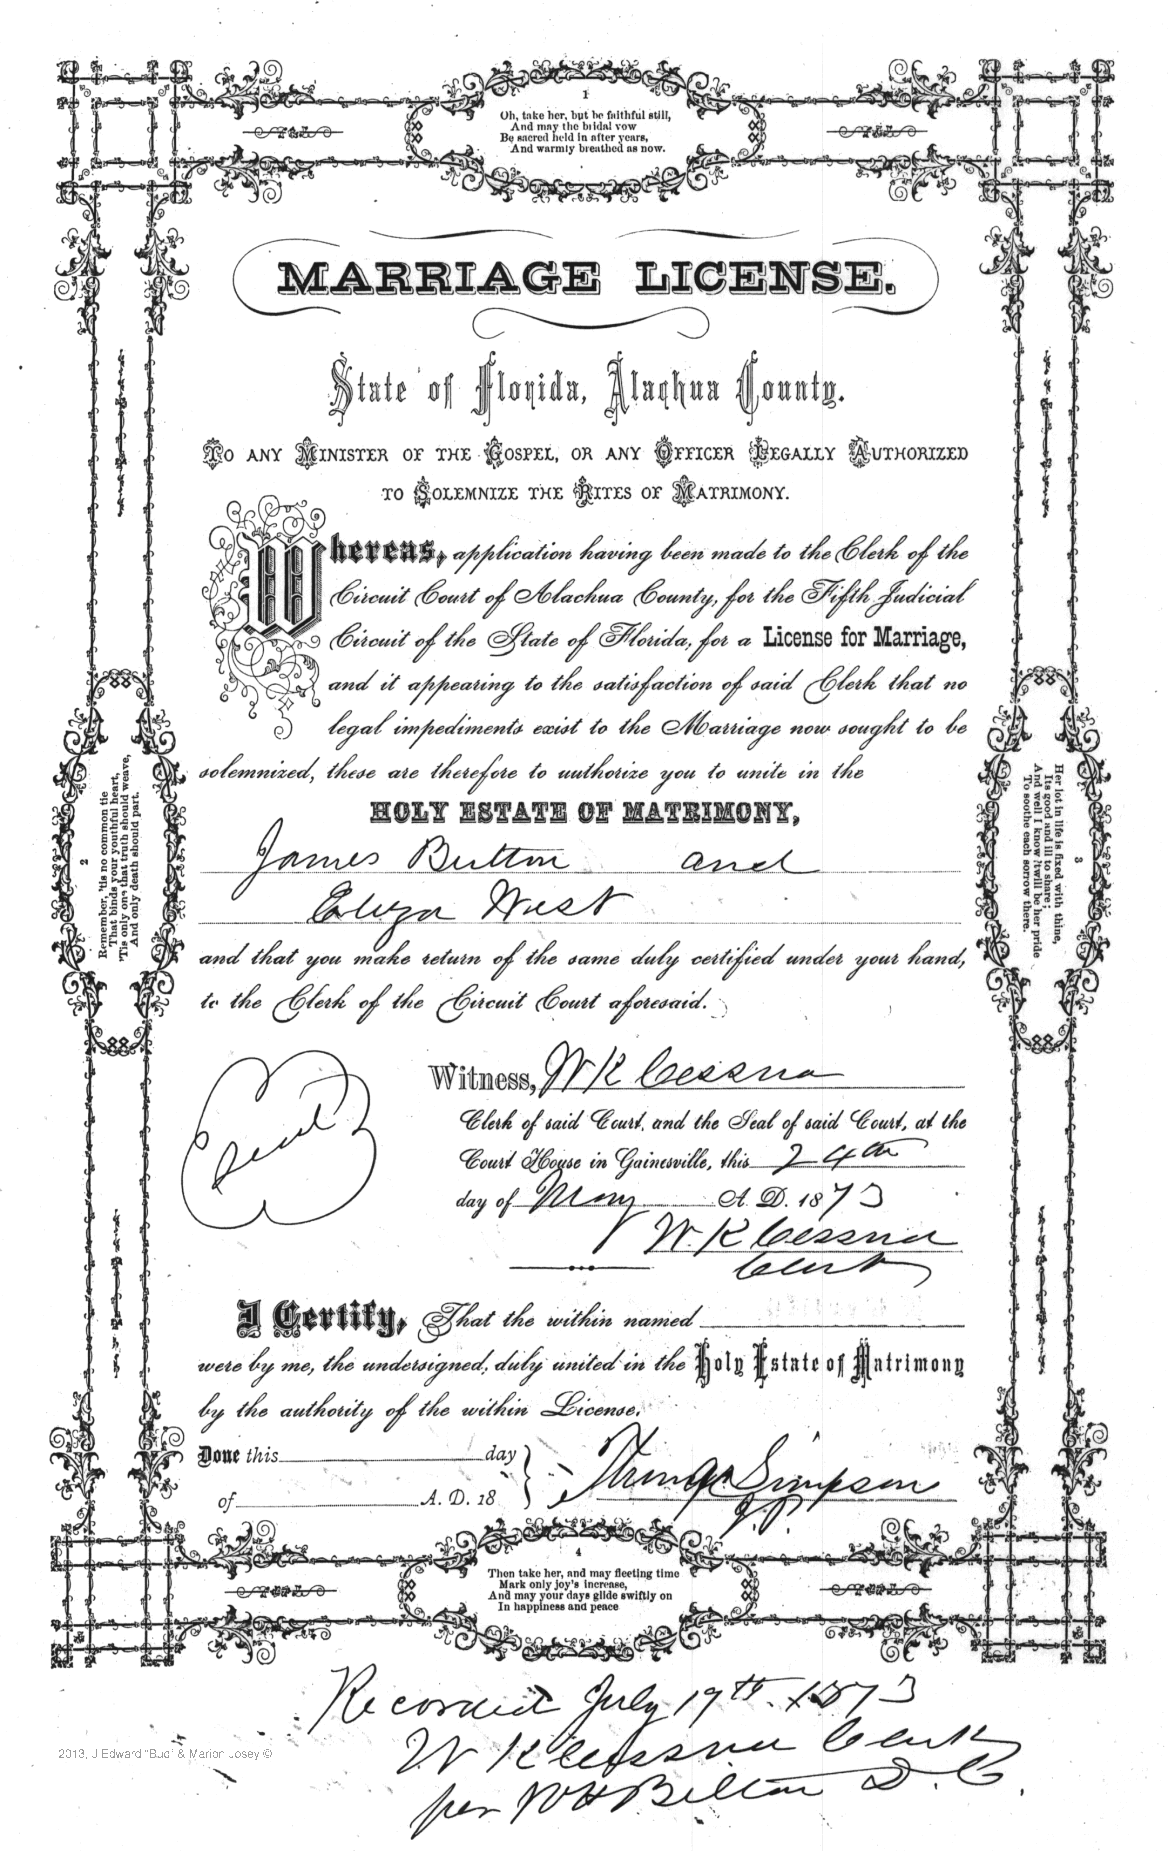 1
Oh, take her, but be faithful still,
And may the bridal vow
Be sacred held in after years,
And warmly breathed as now.
MARRIAGE LICENSE.
State of Florida, Alachua County.
TO ANY MINISTER OF THE GOSPEL, OR ANY OFFICER LEGALLY AUTHORIZED
TO SOLEMNIZE THE RITES OF MATRIMONY.
Whereas, application having been made to the Clerk of the
Circuit Court of Alachua County, for the Fifth Judicial
Circuit of the State of Florida, for a License for Marriage,
and it appearing to the satisfaction of said Clerk that no
legal impediments exist to the Marriage now sought to be
solemnized, these are therefore to authorize you to unite in the
HOLY ESTATE OF MATRIMONY,
James Button and
Eliza West
and that you make return of the same duly certified under your hand,
to the Clerk of the Circuit Court aforesaid.
2
Remember, 'tis no common tie
That binds your youthful heart,
'Tis only one that truth should weave,
And only death should part.
3
Her lot in life is fixed with thine,
Its good and ill to share;
And well I know 'twill be her pride
To soothe each sorrow there.
Seal
Witness, W K Cessna
Clerk of said Court, and the Seal of said Court, at the
Court House in Gainesville, this 24th
day of May A. D. 1873
W. K Cessna
Clerk
I Certify, That the within named
were by me, the undersigned, duly united in the Holy Estate of Matrimony
by the authority of the within License.
Done this day
of A. D. 18
Simpson
J. P.
4
Then take her, and may fleeting time
Mark only joy's increase,
And may your days glide swiftly on
In happiness and peace
Recorded July 19th. 1873
W K Cessna Clerk
per W H Belton D. C.
2013, J Edward "Bud" & Marion Josey ©